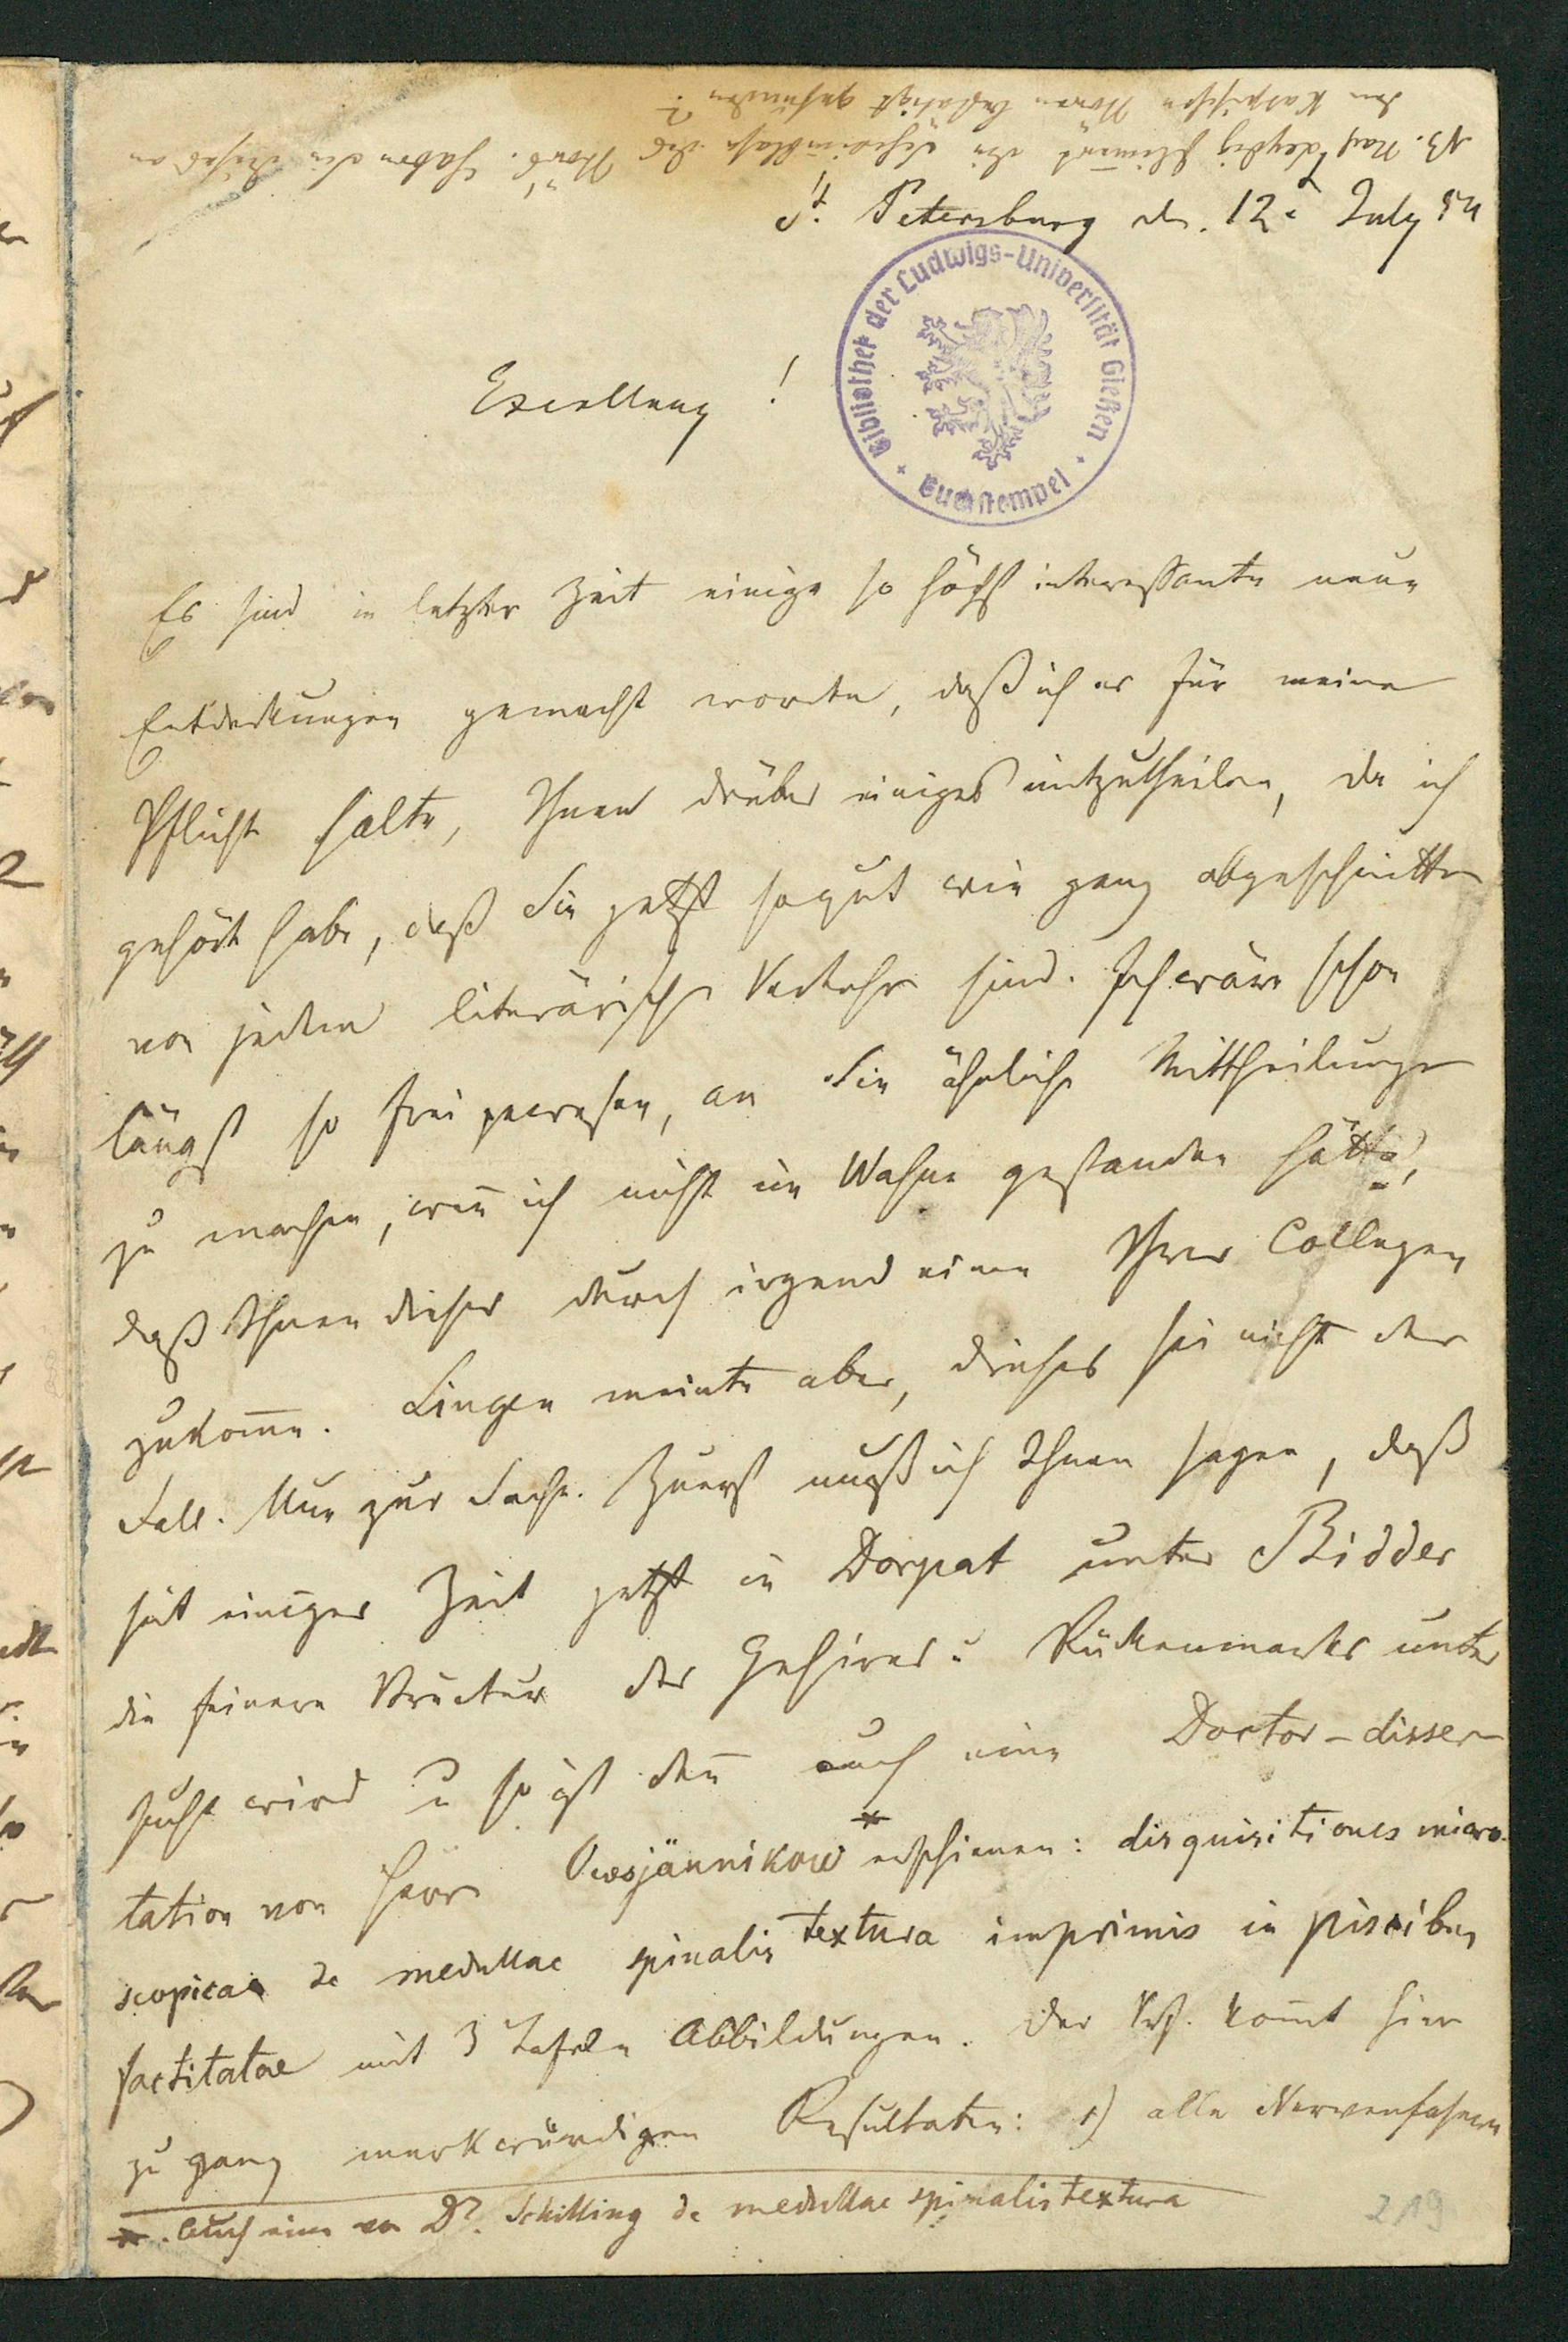 NB. Nach Leydig flimmert die Schwimmblase des Störs. Haben Sie dieses an
den Kaspischen Stören bestätigt gefunden?
St. Petersburg d. 12t July 54
Bibliothek der Ludwigs-Universität Gießen
Buchstempel
Excellenz!
Es sind in letzter Zeit einige so höchst interessante neue
Entdeckungen gemacht worden, daß ich es für meine
Pflicht halte, Ihnen drüber einiges mitzutheilen, da ich
gehört habe, daß Sie jetzt sogut wie ganz abgeschnitten
von jedem literärischen Verkehr sind. Ich wäre schon
längst so frei gewesen, an Sie ähnliche Mittheilungen
zu machen, wen̄ ich nicht im Wahne gestanden hätte,
daß Ihnen dieses durch irgend einen Ihrer Collegen
zukom̄e. Lingen meinte aber, dieses sei nicht der
Fall. Nun zur Sache. Zuerst muß ich Ihnen sagen, daß
seit einiger Zeit jetzt in Dorpat unter Bidder
die feinere Structur des Gehirns u Rückenmarks unter
sucht wird u so ist den̄ auch eine Doctor-disser-
tation von Herrn Owsjännikow * erschienen: disquisitiones micro-
scopicae de medullae spinalis textura imprimis in piscibus
factitatae mit 3 Tafeln Abbildungen. Der Vf. kom̄t hier
zu ganz merkwürdigen Resultaten: 1) alle Nervenfasern
*. Auch eine von Dr. Schilling de medullae spinalis textura
219